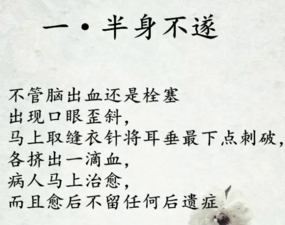 一·半身不遂
不管脑出血还是栓塞
出现口眼歪斜，
马上取缝衣针将耳垂最下点刺破，
各挤出一滴血，
病人马上治愈，
而且愈后不留任何后遗症